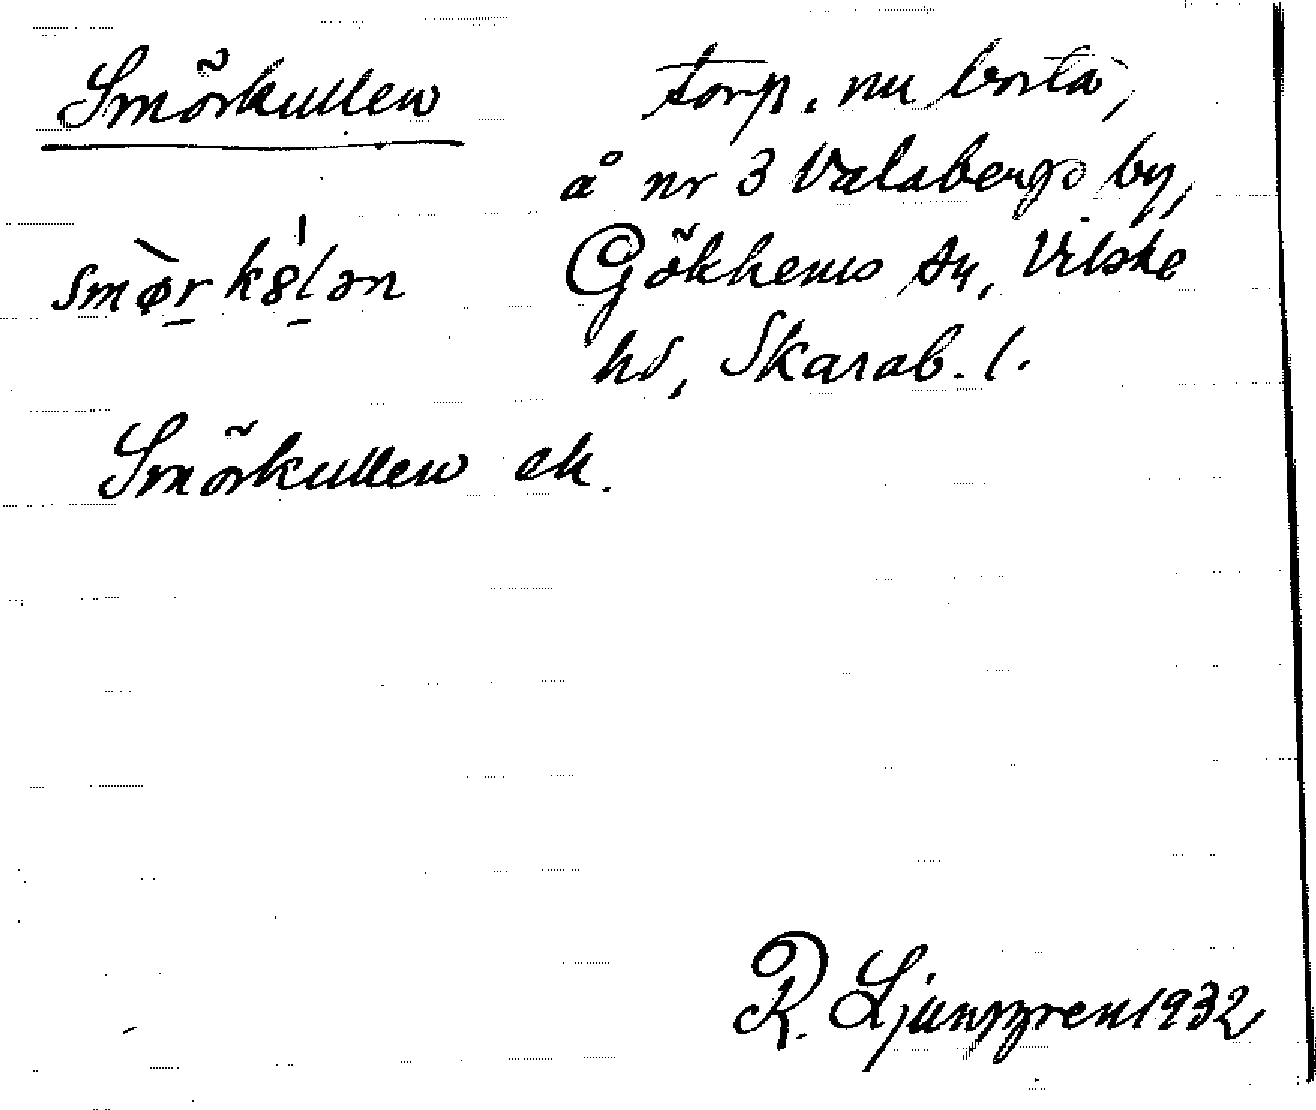 Smörkullen
torp, nu borta,
å nr 3 Valabergs by,
Gökhems sn, Vilske
hd, Skarab. l.
Smörkullen ek.
R. Ljunggren 1932